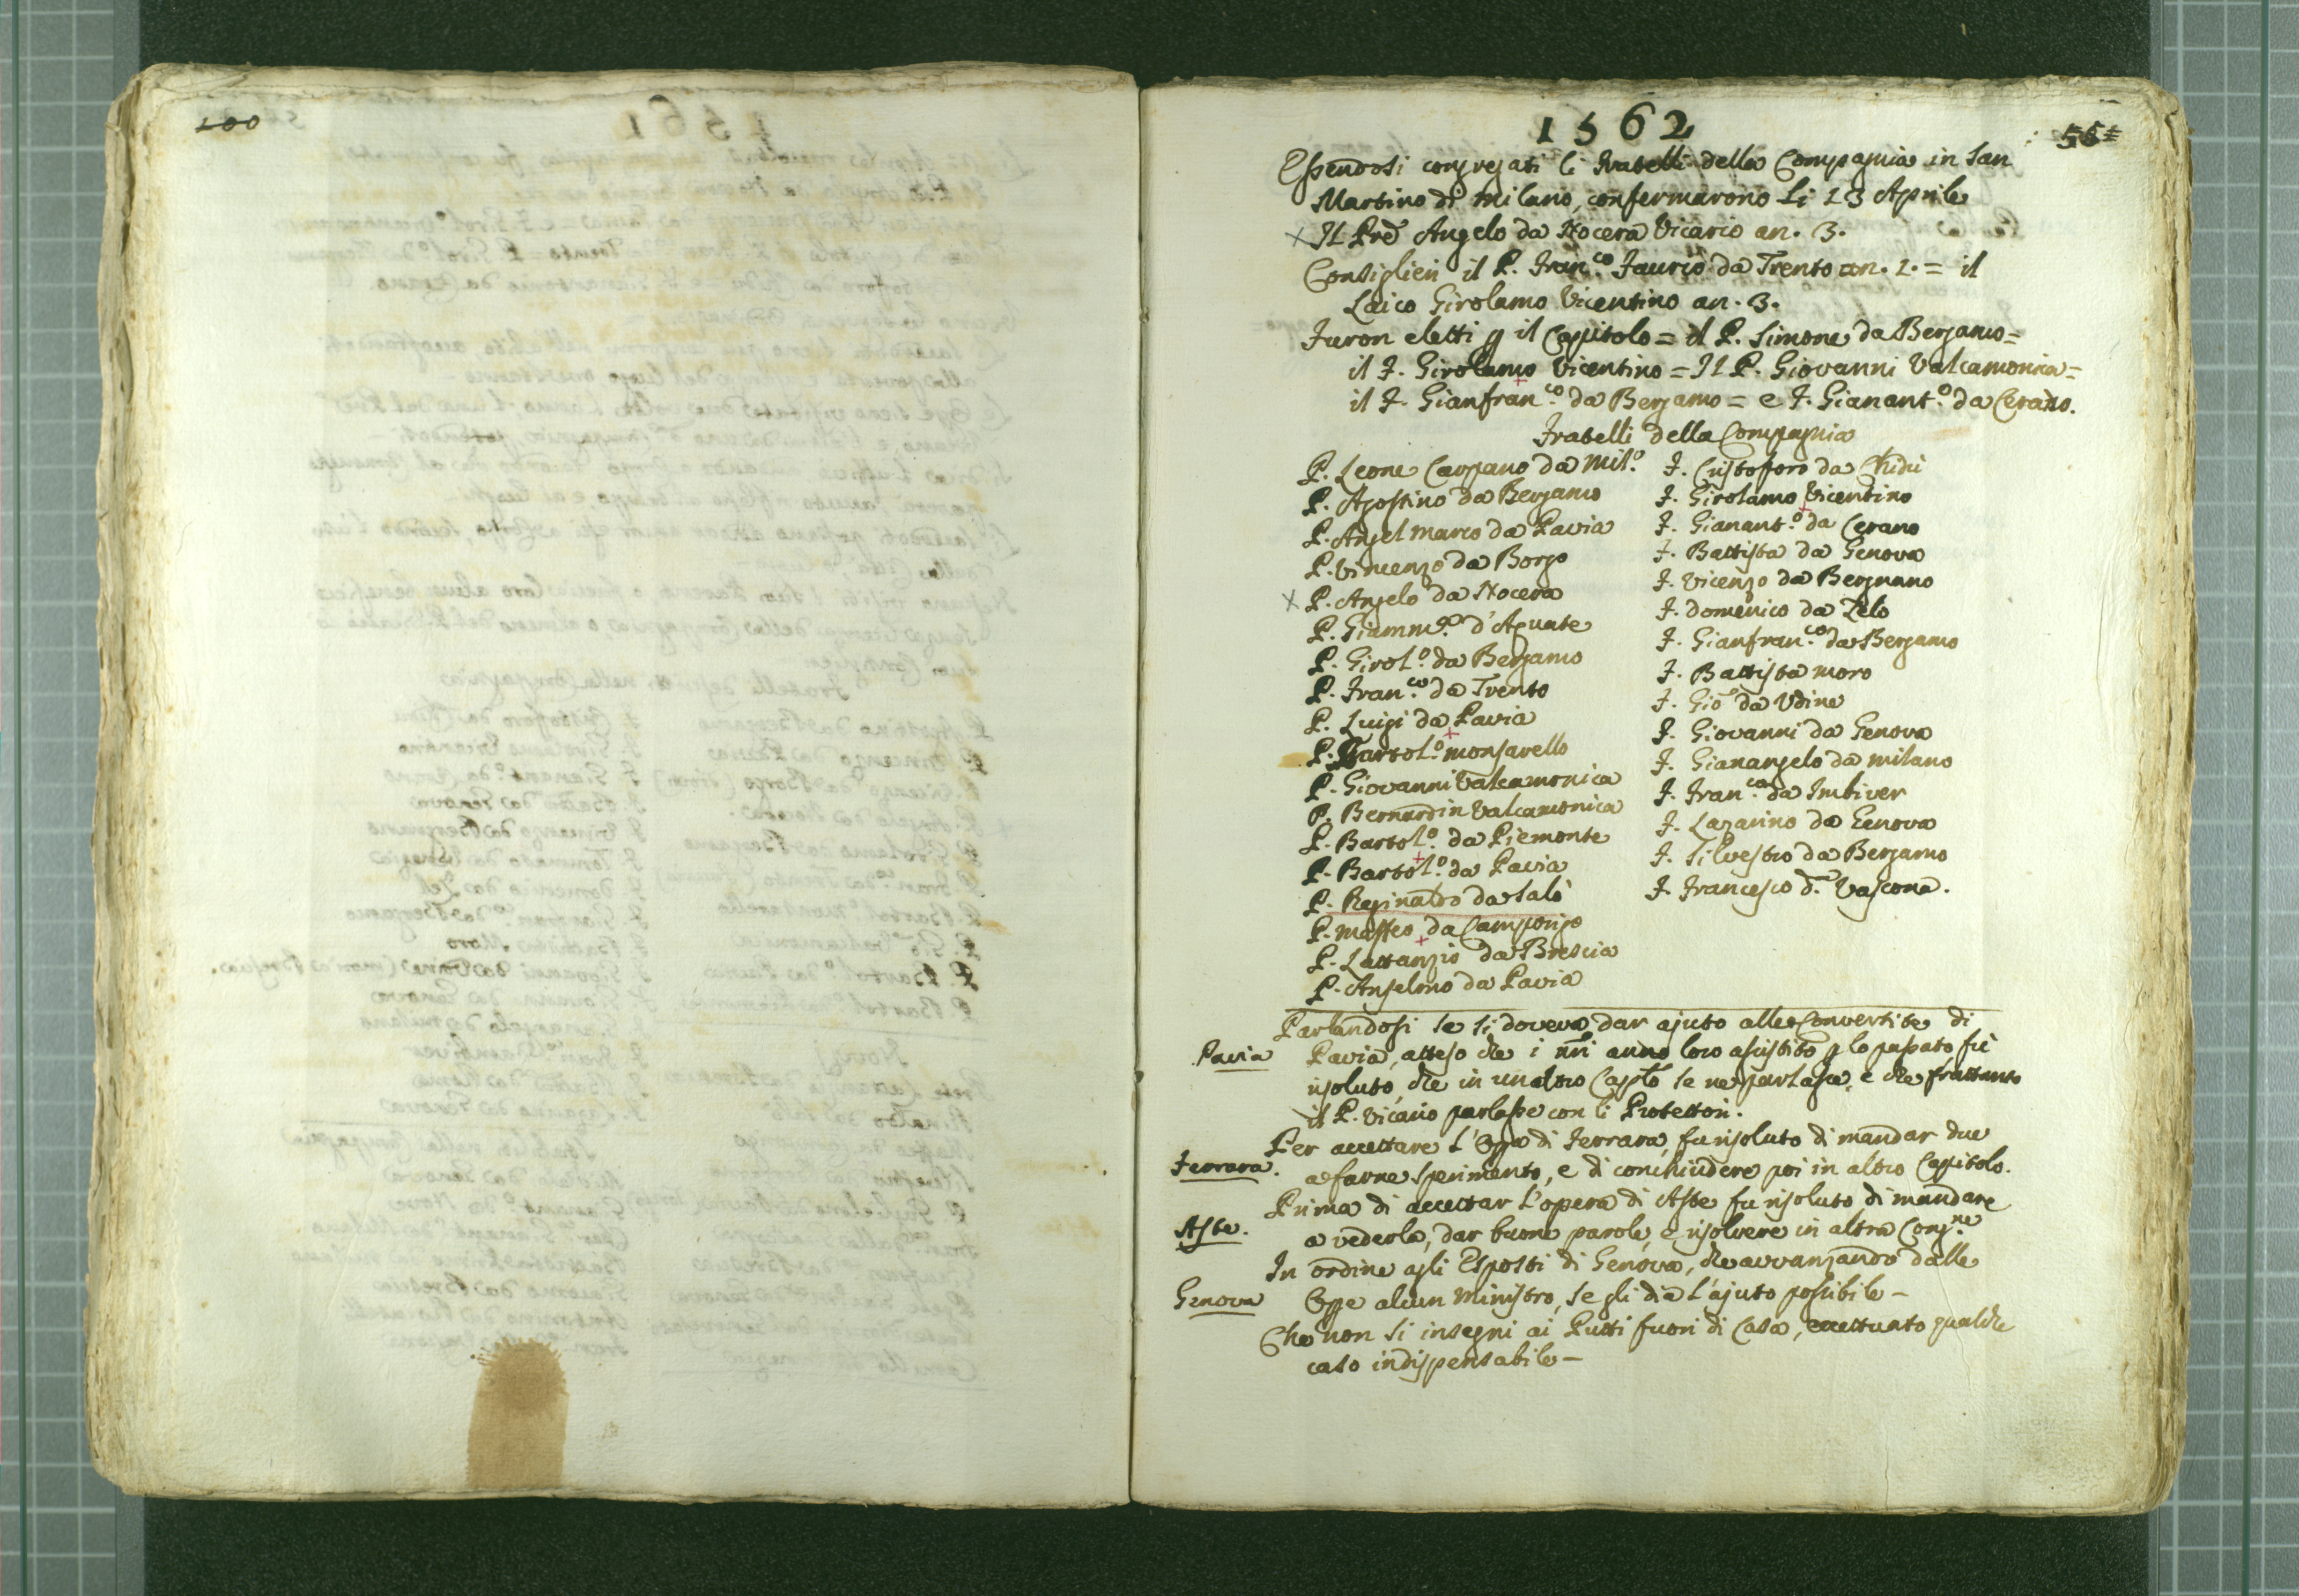 100
1562
Essendosi congregati li Fratelli della Compagnia in San
Martino di Milano, confermarono li 13 Aprile
Il Pre Angelo da Nocera Vicario an. 3.
Consiglieri il P. Fran.co Faurio da Trento an. 1. = il
Laico Girolamo Vicentino an. 3.
Furon eletti p il Capitolo = il P. Simone da Bergamo =
il F. Girolamo Vicentino = Il P. Giovanni Valcamonica =
il F. Gianfran.co da Bergamo = e F. Gianant.o da Cerano.
Fratelli della Compagnia
P. Leone Carpano da Mil.o
P. Agostino da Bergamo
P. Angel Marco da Pavia
P. Vincenzo da Borgo
P. Angelo da Nocera
P. Giamm.a d'Aguate
P. Girol.o da Bergamo
P. Fran.co da Trento
P. Luigi da Pavia
P. Bartol.o Monsavello
P. Giovanni Valcamonica
P. Bernardin Valcamonica
P. Bartol.o da Piemonte
P. Bartol.o da Pavia
P. Reginaldo da Salò
P. Maffeo da Camporgo
P. Lattanzio da Brescia
P. Anselmo da Pavia
F. Cristoforo da Chidù
F. Girolamo Vicentino
F. Gianant.o da Cerano
F. Battista da Genova
F. Vicenzo da Bergnano
F. Domenico da Zelo
F. Gianfran.co da Bergamo
F. Battista Moro
F. Gio da Udine
F. Giovanni da Genova
F. Gianangelo da Milano
F. Fran.co da Imbiver
F. Lazarino da Genova
F. Silvestro da Bergamo
F. Francesco d. Vascona.
Parlandosi se si doveva dar ajuto alle Convertite di
Pavia
Pavia, atteso che i nri anno loro assistito p lo passato fù
risoluto, che in un altro Caplo se ne parlasse, e che frattanto
il P. Vicario parlasse con li Protettori.
Per accettare l'Opa di Ferrara, fu risoluto di mandar due
Ferrara.
a farne sperimento, e di conchiudere poi in altro Capitolo.
Prima di accettar l'opera di Aste fu risoluto di mandare
Aste.
a vederla, dar buone parole, e risolvere in altra Cong.ne
In ordine agli Esposti di Genova, che avvanzando dalle
Genova
Oppe alcun Ministro, se gli dia l'ajuto possibile –
Che non si insegni ai Putti fuori di Casa, eccettuato qualche
caso indispensabile –